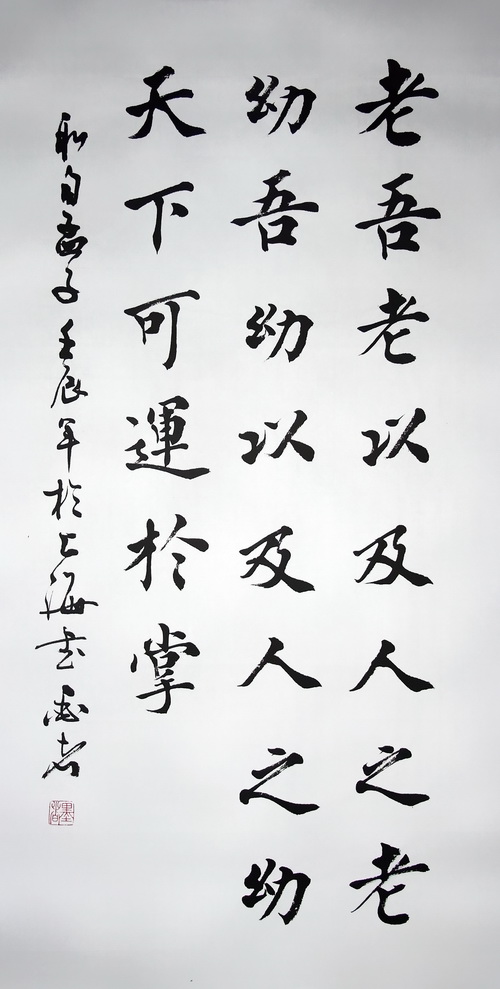 老吾老以及人之老
幼吾幼以及人之幼
天下可運於掌
孟子壬辰年於上海书